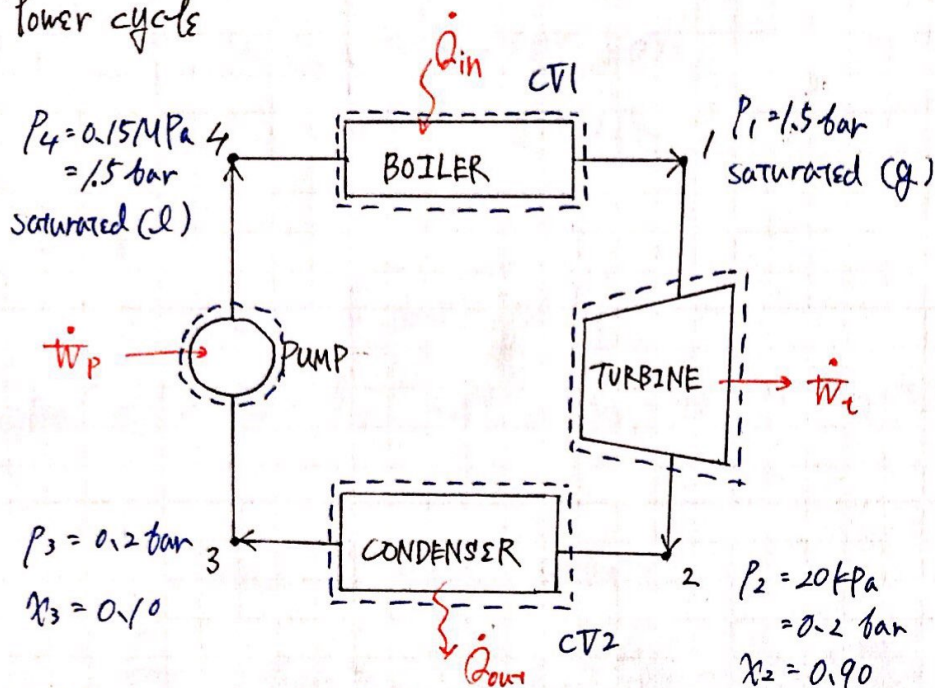 Power cycle
Q̇in
CV1
P4 = 0.15MPa 4
= 1.5 bar
saturated (l)
BOILER
1
P1 = 1.5 bar
saturated (g)
Ẇp
PUMP
TURBINE
Ẇt
P3 = 0.2 bar
3
x3 = 0.10
CONDENSER
2
P2 = 20 kPa
= 0.2 bar
x2 = 0.90
Q̇out
CV2